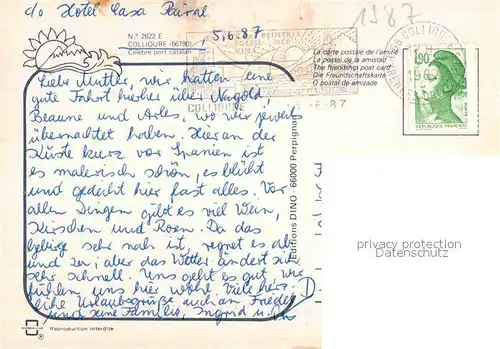 c/o Hotel Casa Pairal
5.6.87
1987
N.° 2622 E
COLLIOURE (66190)
Célèbre port catalan
SOLEIL MER
COLLIOURE
-6-87
La carte postale de l'amitié
La postal de la amistad
The friendship post card
Die Freundschaftskarte
O postal de amizade
1,90
RÉPUBLIQUE FRANÇAISE
Liebe Mutter, wir hatten eine
gute Fahrt hierher über Nagold,
Beaune und Arles, wo wir jeweils
übernachtet haben. Hier an der
Küste kurz vor Spanien ist
es malerisch schön, es blüht
und gedeiht hier fast alles. Vor
allen Dingen gibt es viel Wein,
Kirschen und Rosen. Da das
Gebirge sehr nah ist, regnet es ab
und zu, aber das Wetter ändert sich
sehr schnell. Uns geht es gut, wir
fühlen uns hier wohl. Viele herz-
liche Urlaubsgrüße auch an Frieder
und seine Familie, Ingrid u.
Editions DINO - 66000 Perpignan
privacy protection
Datenschutz
Reproduction Interdite